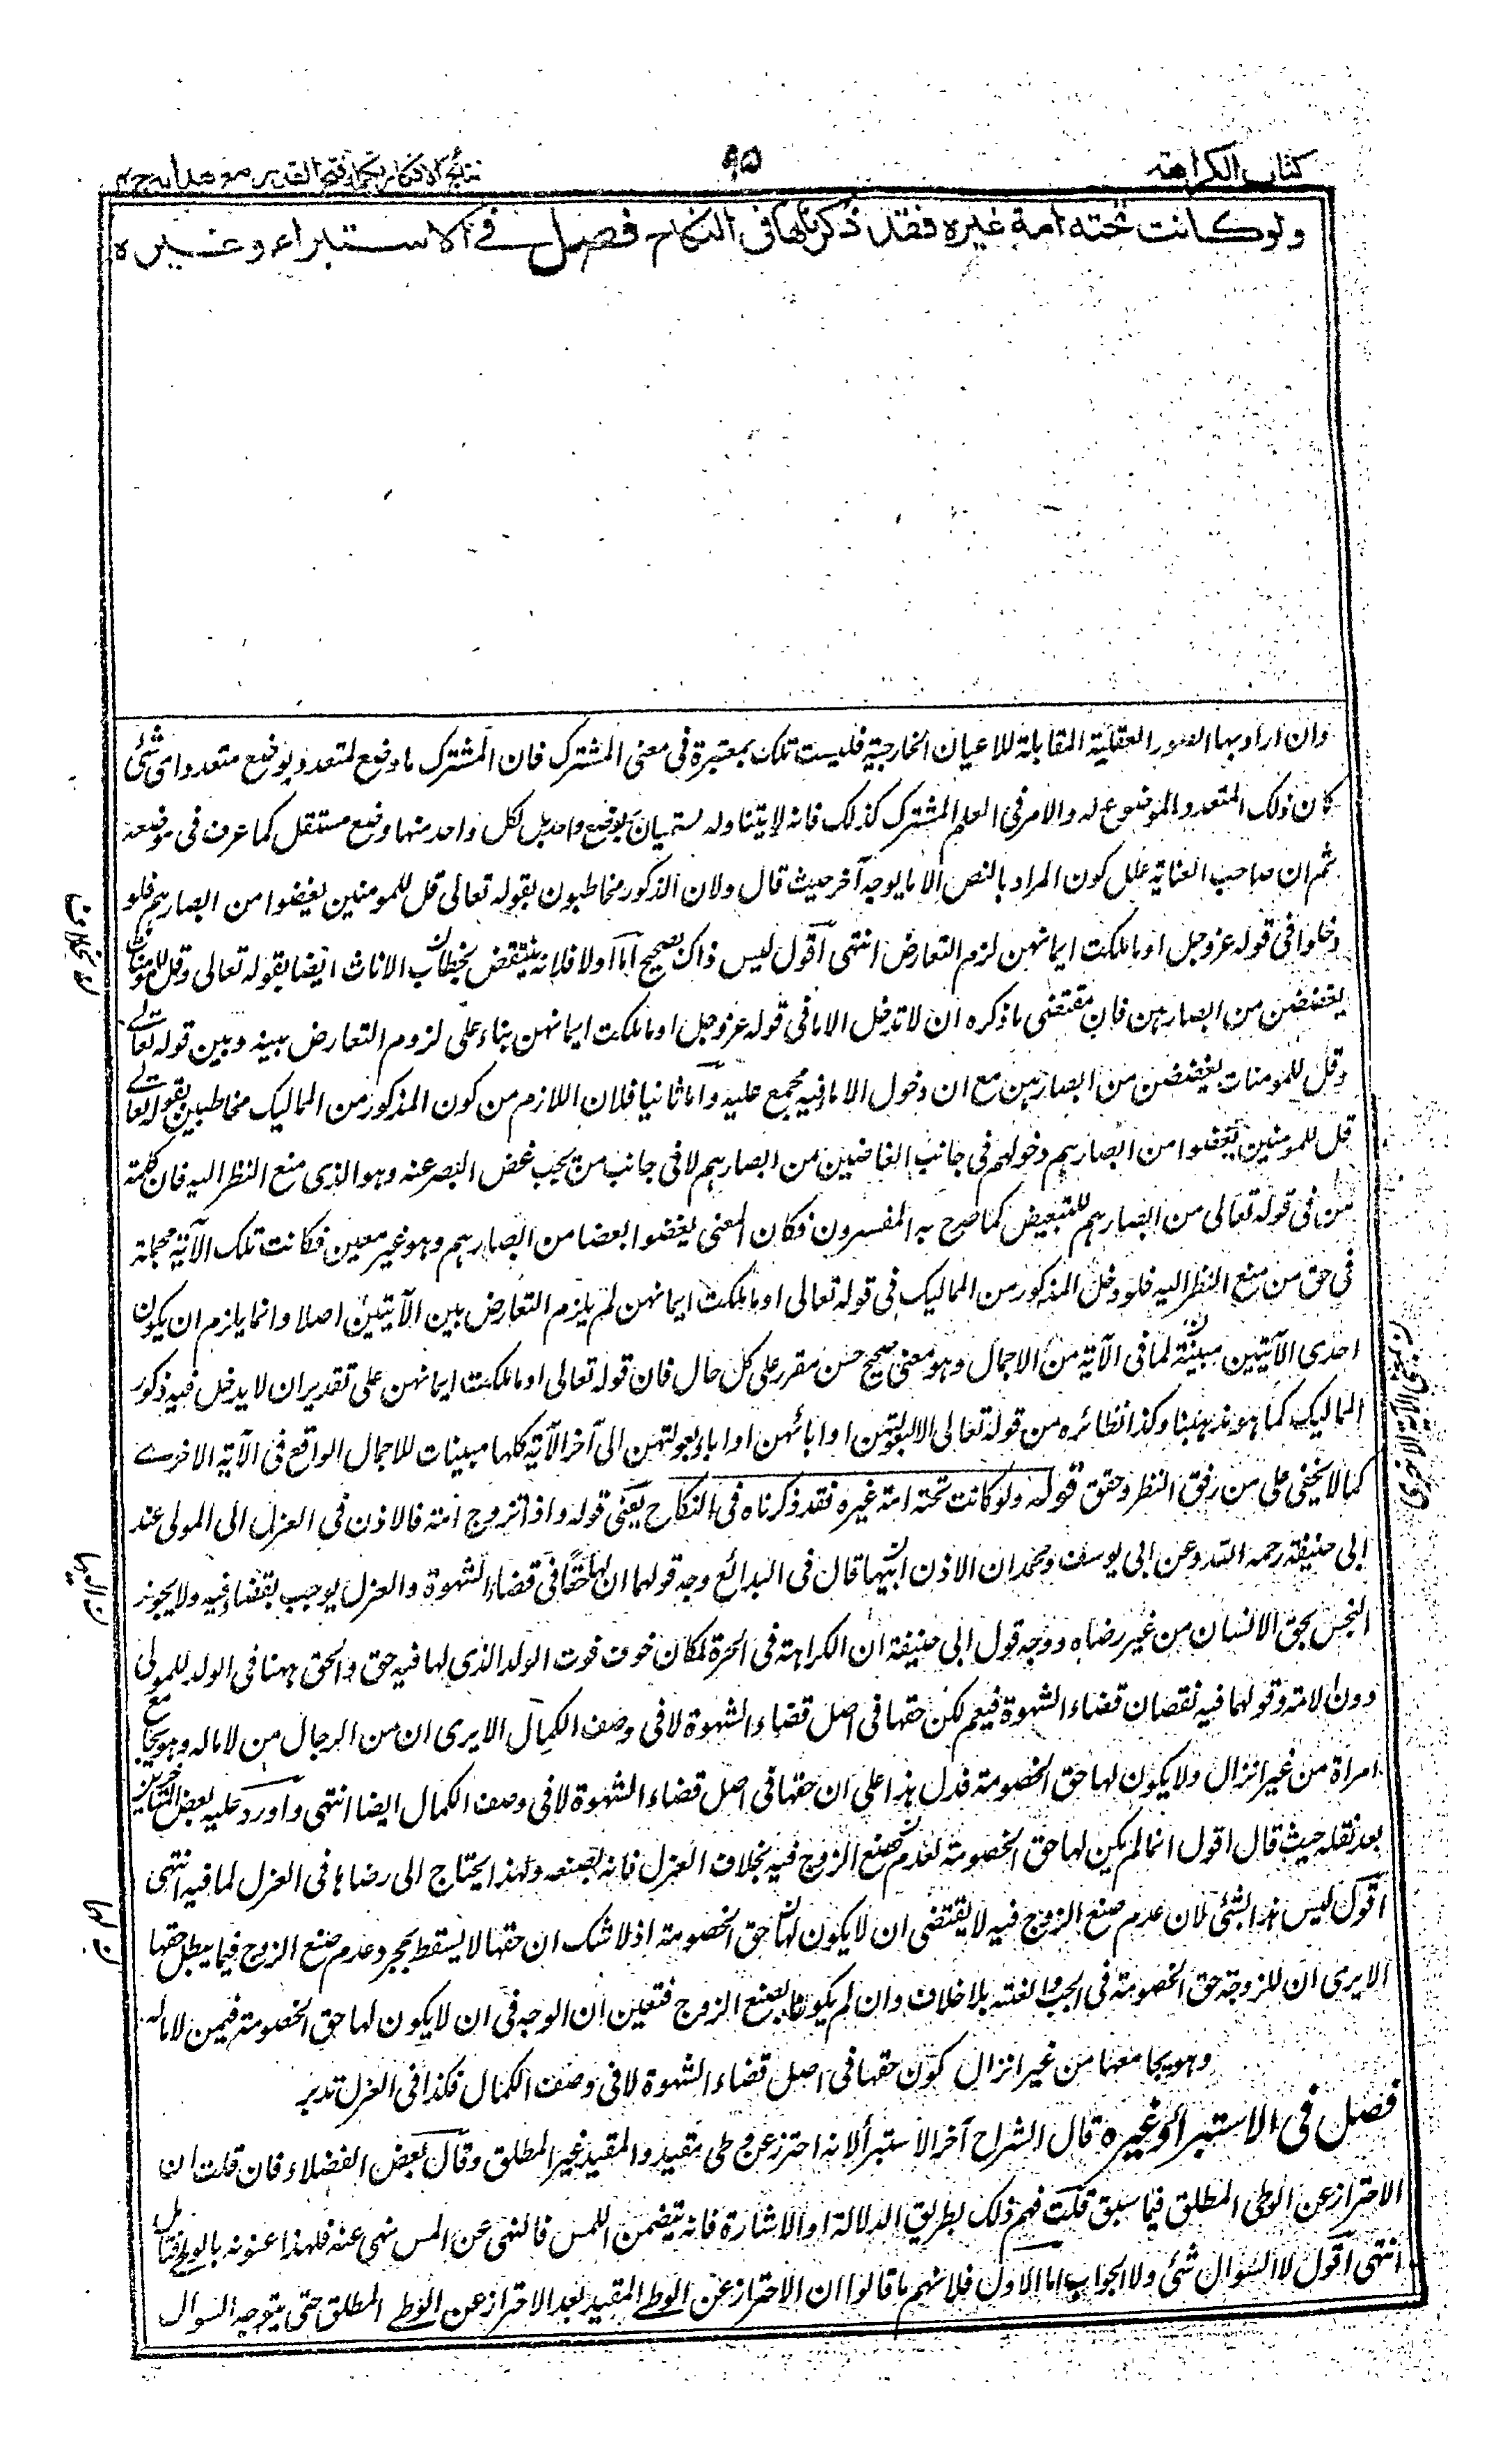 كتاب الكراهية
٩٥
نتائج الافكار تكملة فتح القدير مع هداية ج ٤
ولو كانت تحته امة غيره فقد ذكرناها فى النكاح فصل فى الاستبراء وغيره
وان اراد بها الصور العقلية المقابلة للاعيان الخارجية فليست تلك بمعتبرة فى معنى المشترك فان المشترك ما وضع لمتعدد بوضع متعدد اى شئ
كان ذلك المتعدد الموضوع له والامر فى العلم المشترك كذلك فانه لا يتناوله مسميان بوضع واحد بل لكل واحد منها وضع مستقل كما عرف فى موضعه
ثم ان صاحب العناية علل كون المراد بالنص الاماء بوجه آخر حيث قال ولان الذكور مخاطبون بقوله تعالى قل للمومنين يغضوا من ابصارهم فلو
دخلوا فى قوله عز وجل او ما ملكت ايمانهن لزم التعارض انتهى اقول ليس ذاك بصحيح اما اولا فلانه ينتقض بخطاب الاناث ايضا بقوله تعالى وقل للمومنات
يغضضن من ابصارهن فان مقتضى ما ذكره ان لا تدخل الاماء فى قوله عز وجل او ما ملكت ايمانهن بناء على لزوم التعارض بينه وبين قوله تعالى
وقل للمومنات يغضضن من ابصارهن مع ان دخول الاماء فيه مجمع عليه واما ثانيا فلان اللازم من كون المذكور من المماليك مخاطبين بقوله تعالى
قل للمومنين يغضوا من ابصارهم دخولهم فى جانب الغاضين من ابصارهم لا فى جانب من يجب غض البصر عنه وهو الذى منع النظر اليه فان كلمة
من فى قوله تعالى من ابصارهم للتبعيض كما صرح به المفسرون فكان المعنى يغضوا بعضا من ابصارهم وهو غير معين فكانت تلك الآية مجملة
فى حق من منع النظر اليه فلو دخل المذكور من المماليك فى قوله تعالى او ما ملكت ايمانهن لم يلزم التعارض بين الآيتين اصلا وانما يلزم ان يكون
احدى الآيتين مبينة لما فى الآية من الاجمال وهو معنى صحيح حسن مقرر على كل حال فان قوله تعالى او ما ملكت ايمانهن على تقدير ان لا يدخل فيه ذكور
المماليك كما هو مذهبنا وكذا نظائره من قوله تعالى الا لبعولتهن او ابائهن او اباء بعولتهن الى آخر الآية كلها مبينات للاجمال الواقع فى الآية الاخرى
كما لا يخفى على من دقق النظر وحقق قوله ولو كانت تحته امة غيره فقد ذكرناه فى النكاح يعنى قوله واذا تزوج امة فالاذن فى العزل الى المولى عند
ابى حنيفة رحمه الله وعن ابى يوسف ومحمد ان الاذن اليها قال فى البدائع وجه قولهما ان لها حقا فى قضاء الشهوة والعزل يوجب نقصا فيه ولا يجوز
البخس بحق الانسان من غير رضاه ووجه قول ابى حنيفة ان الكراهة فى الحرة لمكان خوف فوت الولد الذى لها فيه حق والحق ههنا فى الولد للمولى
دون الامة وقولهما فيه نقصان قضاء الشهوة فنعم لكن حقها فى اصل قضاء الشهوة لا فى وصف الكمال الا يرى ان من الرجال من لا ماء له وهو يجامع
امراة من غير انزال ولا يكون لها حق الخصومة فدل هذا على ان حقها فى اصل قضاء الشهوة لا فى وصف الكمال ايضا انتهى واورد عليه بعض المتاخرين
بعد نقله حيث قال اقول انما لم يكن لها حق الخصومة لعدم صنع الزوج فيه بخلاف العزل فانه بصنعه ولهذا يحتاج الى رضاها فى العزل لما فيه انتهى
اقول ليس هذا بشئ لان عدم صنع الزوج فيه لا يقتضى ان لا يكون لها حق الخصومة اذ لا شك ان حقها لا يسقط بمجرد عدم صنع الزوج فيما يبطل حقها
الا يرى ان للزوجة حق الخصومة فى الجب والعنة بلا خلاف وان لم يكونا بصنع الزوج فتعين ان الوجه فى ان لا يكون لها حق الخصومة فيمن لا ماء له
وهو يجامعها من غير انزال كون حقها فى اصل قضاء الشهوة لا فى وصف الكمال فكذا فى العزل تدبر
فصل فى الاستبراء وغيره قال الشراح آخر الاستبراء لانه احتراز عن وطى مقيد والمقيد غير المطلق وقال بعض الفضلاء فان قلت اين
الاحتراز عن الوطى المطلق فيما سبق قلت فهم ذلك بطريق الدلالة او الاشارة فانه يتضمن اللمس فالنهى عن المس نهى عنه فلهذا عنونه بالوطى فتامل
انتهى اقول لا السؤال شئ ولا الجواب اما الاول فلانهم ما قالوا ان الاحتراز عن الوطى المقيد بعد الاحتراز عن الوطى المطلق حتى يتوجه السؤال